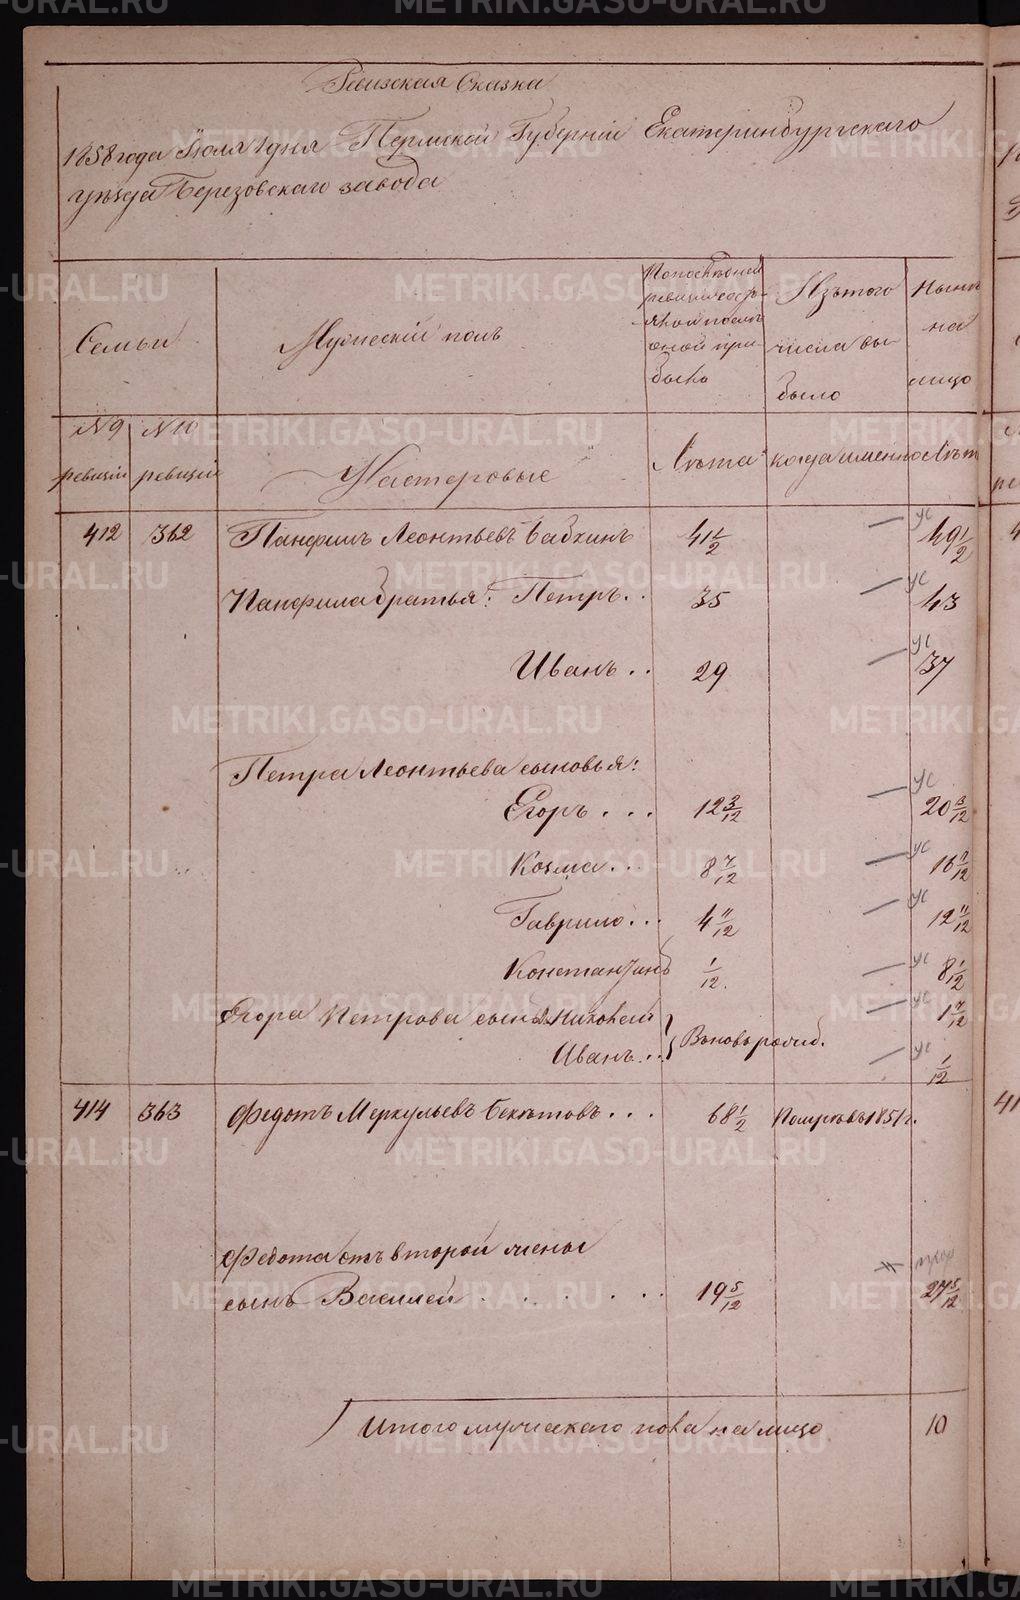 Ревизская Сказка
1858 года Іюля 1 дня Пермской Губерніи Екатеринбургскаго
уѣзда Березовскаго завода
Семьи
Мужескій полъ
По послѣдней
ревизіи состо-
яло и послѣ
оной при-
было
Изъ того
числа вы-
было
Нынѣ
на
лицо
№ 9 ревизіи
№ 10 ревизіи
Мастеровые
Лѣта
когда именно
Лѣта
412 362 Панфилъ Леонтьевъ Бабкинъ 41 1/2 — ус 49 1/2
Панфила братья: Петръ.. 35 — ус 43
Иванъ.. 29 — ус 37
Петра Леонтьева сыновья:
Егоръ... 12 3/12 — ус 20 3/12
Козма... 8 7/12 — ус 16 7/12
Гаврило... 4 11/12 — ус 12 11/12
Константинъ 1/12. — ус 8 1/12
Егора Петрова сынъ Никовай — ус 1 7/12
Иванъ.. } Вновьрожд. — ус 1/12
414 363 Федотъ Меркульевъ Бекетовъ... 68 1/2 Померъ въ 1851 г.
Федота отъ второй жены
сынъ Василей . . . . . . 19 5/12 27 5/12
Итого мужескаго пола на лицо 10
METRIKI.GASO-URAL.RU